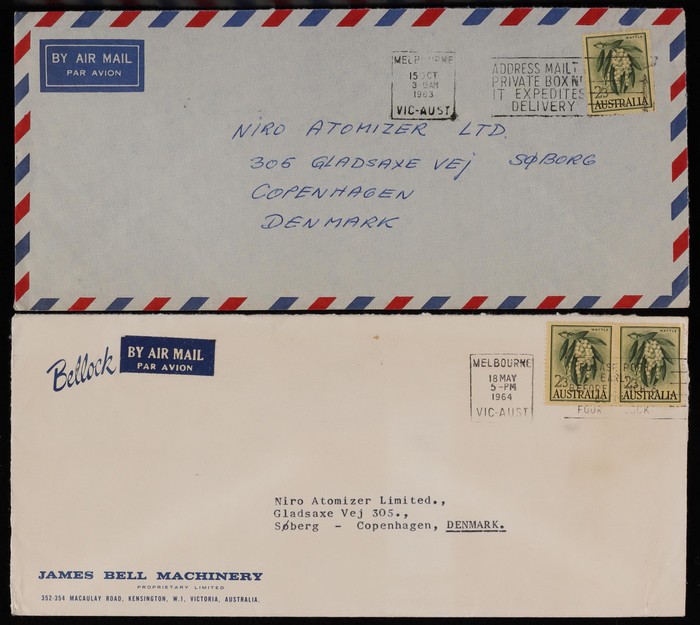 BY AIR MAIL
PAR AVION
MELBOURNE
15 OCT
1963
VIC-AUST
ADDRESS MAIL
PRIVATE BOX
IT EXPEDITES
DELIVERY
WATTLE
2/3
AUSTRALIA
NIRO ATOMIZER LTD.
305 GLADSAXE VEJ SØBORG
COPENHAGEN
DENMARK
Bellock
BY AIR MAIL
PAR AVION
MELBOURNE
18 MAY
5-PM
1964
VIC-AUST
WATTLE
2/3
AUSTRALIA
WATTLE
2/3
AUSTRALIA
Niro Atomizer Limited.,
Gladsaxe Vej 305.,
Søberg - Copenhagen, DENMARK.
JAMES BELL MACHINERY
PROPRIETARY LIMITED
352-354 MACAULAY ROAD, KENSINGTON, W.1, VICTORIA, AUSTRALIA.